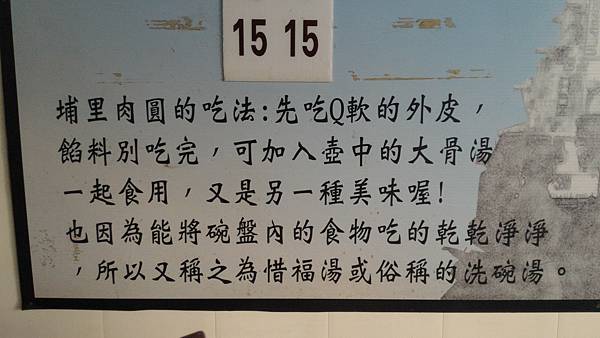 15 15
埔里肉圓的吃法:先吃Q軟的外皮，
餡料別吃完，可加入壺中的大骨湯
一起食用，又是另一種美味喔!
也因為能將碗盤內的食物吃的乾乾淨淨
，所以又稱之為惜福湯或俗稱的洗碗湯。